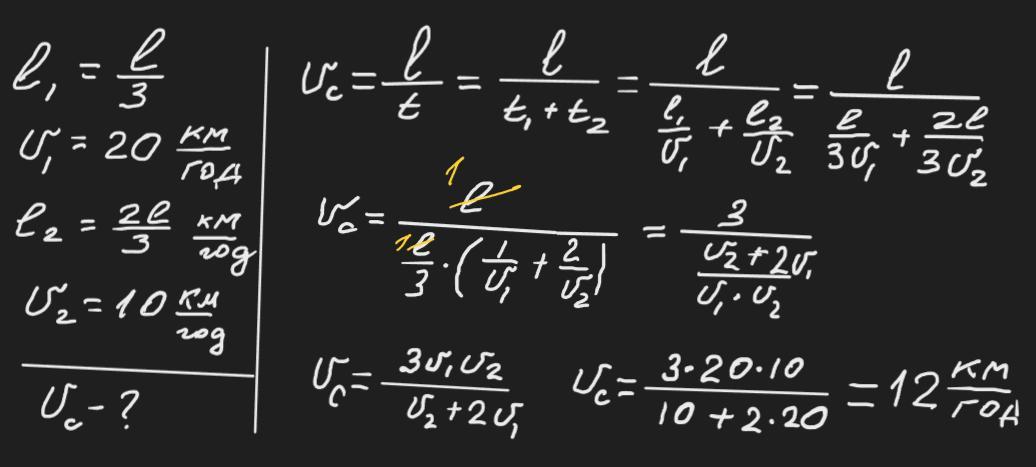 l₁ = l/3
v₁ = 20 км/год
l₂ = 2l/3 км/год
v₂ = 10 км/год
v_c - ?
v_c = l/t = l/(t₁ + t₂) = l/(l₁/v₁ + l₂/v₂) = l/(l/3v₁ + 2l/3v₂)
v_c = 1 l/(1 l/3 · (1/v₁ + 2/v₂)) = 3/((v₂ + 2v₁)/(v₁ · v₂))
v_c = 3v₁v₂/(v₂ + 2v₁) v_c = (3·20·10)/(10 + 2·20) = 12 км/год